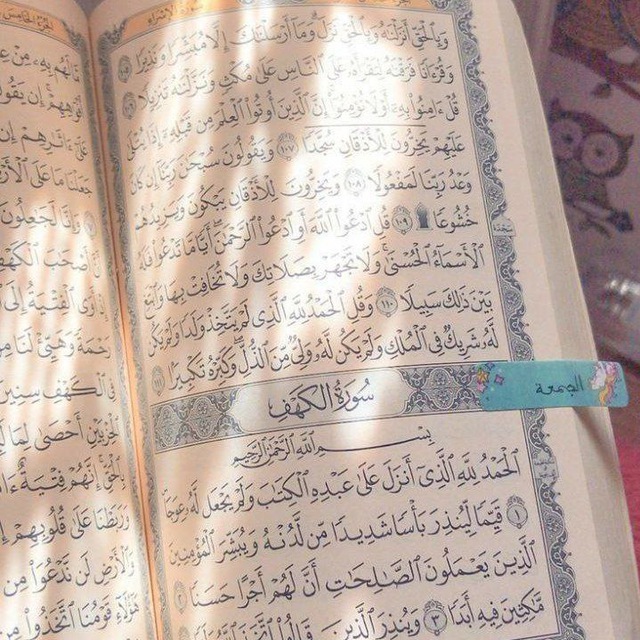 الجزء الخامس عشر
سورة الإسراء
وَبِٱلْحَقِّ أَنزَلْنَٰهُ وَبِٱلْحَقِّ نَزَلَ ۗ وَمَآ أَرْسَلْنَٰكَ إِلَّا مُبَشِّرًا وَنَذِيرًا ١٠٥
وَقُرْءَانًا فَرَقْنَٰهُ لِتَقْرَأَهُۥ عَلَى ٱلنَّاسِ عَلَىٰ مُكْثٍ وَنَزَّلْنَٰهُ تَنزِيلًا ١٠٦
قُلْ ءَامِنُوا۟ بِهِۦٓ أَوْ لَا تُؤْمِنُوٓا۟ ۚ إِنَّ ٱلَّذِينَ أُوتُوا۟ ٱلْعِلْمَ مِن قَبْلِهِۦٓ إِذَا يُتْلَىٰ
عَلَيْهِمْ يَخِرُّونَ لِلْأَذْقَانِ سُجَّدًا ١٠٧ وَيَقُولُونَ سُبْحَٰنَ رَبِّنَآ إِن كَانَ
وَعْدُ رَبِّنَا لَمَفْعُولًا ١٠٨ وَيَخِرُّونَ لِلْأَذْقَانِ يَبْكُونَ وَيَزِيدُهُمْ
خُشُوعًا ۩ ١٠٩ قُلِ ٱدْعُوا۟ ٱللَّهَ أَوِ ٱدْعُوا۟ ٱلرَّحْمَٰنَ ۖ أَيًّا مَّا تَدْعُوا۟ فَلَهُ
ٱلْأَسْمَآءُ ٱلْحُسْنَىٰ ۚ وَلَا تَجْهَرْ بِصَلَاتِكَ وَلَا تُخَافِتْ بِهَا وَٱبْتَغِ
بَيْنَ ذَٰلِكَ سَبِيلًا ١١٠ وَقُلِ ٱلْحَمْدُ لِلَّهِ ٱلَّذِى لَمْ يَتَّخِذْ وَلَدًا وَلَمْ يَكُن
لَّهُۥ شَرِيكٌ فِى ٱلْمُلْكِ وَلَمْ يَكُن لَّهُۥ وَلِىٌّ مِّنَ ٱلذُّلِّ ۖ وَكَبِّرْهُ تَكْبِيرًا ١١١
سُورَةُ الكَهْفِ
بِسْمِ ٱللَّهِ ٱلرَّحْمَٰنِ ٱلرَّحِيمِ
ٱلْحَمْدُ لِلَّهِ ٱلَّذِىٓ أَنزَلَ عَلَىٰ عَبْدِهِ ٱلْكِتَٰبَ وَلَمْ يَجْعَل لَّهُۥ عِوَجَا
١ قَيِّمًا لِّيُنذِرَ بَأْسًا شَدِيدًا مِّن لَّدُنْهُ وَيُبَشِّرَ ٱلْمُؤْمِنِينَ
ٱلَّذِينَ يَعْمَلُونَ ٱلصَّٰلِحَٰتِ أَنَّ لَهُمْ أَجْرًا حَسَنًا ٢
مَّٰكِثِينَ فِيهِ أَبَدًا ٣ وَيُنذِرَ ٱلَّذِينَ قَالُوا۟ ٱتَّخَذَ ٱللَّهُ وَلَدًا
الجمعة
الجزء الخامس
مَّا لَهُم بِهِۦ مِنْ
أَفْوَٰهِهِمْ ۚ إِن
عَلَىٰٓ ءَاثَٰرِهِمْ إِن
جَعَلْنَا مَا عَلَى
وَإِنَّا لَجَٰعِلُونَ
أَنَّ أَصْحَٰبَ
إِذْ أَوَى ٱلْفِتْيَةُ إِلَى
رَحْمَةً وَهَيِّئْ لَنَا
فِى ٱلْكَهْفِ سِنِينَ
ٱلْحِزْبَيْنِ أَحْصَىٰ لِمَا
بِٱلْحَقِّ ۚ إِنَّهُمْ فِتْيَةٌ
وَرَبَطْنَا عَلَىٰ قُلُوبِهِمْ
وَٱلْأَرْضِ لَن نَّدْعُوَا۟ مِن
هَٰٓؤُلَآءِ قَوْمُنَا ٱتَّخَذُوا۟